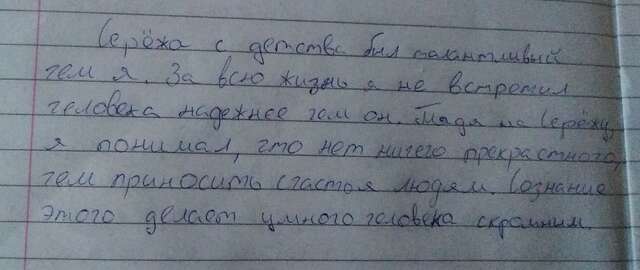 Серёжа с детства был талантливый
чем я. За всю жизнь я не встретил
человека надежнее чем он. Глядя на Серёжу
я понимал, что нет ничего прекрастного,
чем приносить счастоя людям. Сознание
этого делает умного человека скромним.